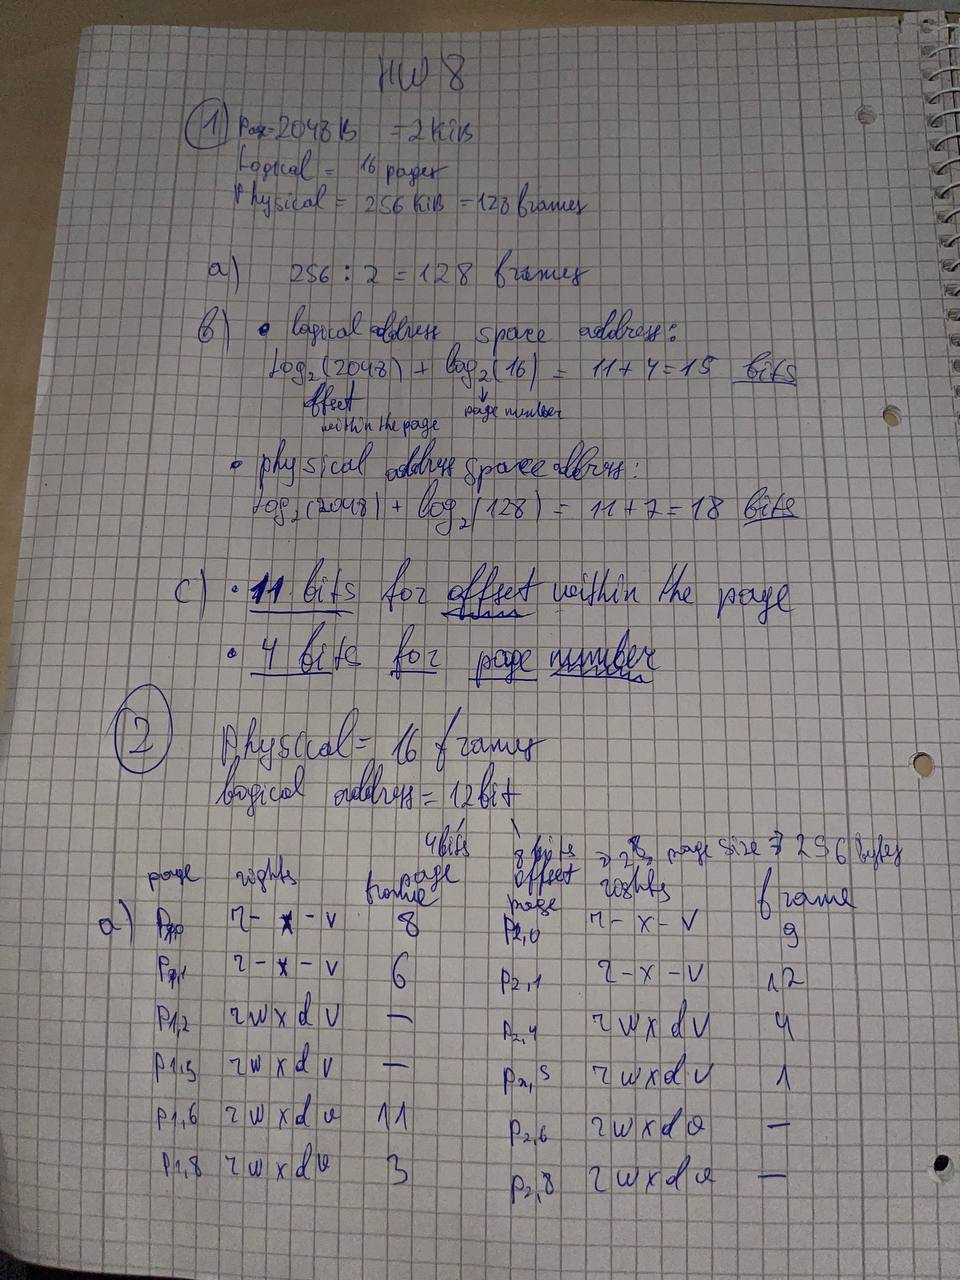 HW 8
1 Pag=2048B =2KiB
Logical = 16 pages
Physical = 256 KiB = 128 frames
a) 256 : 2 = 128 frames
b) • logical address space address:
log2(2048) + log2(16) = 11+4=15 bits
offset page number
within the page
• physical address space address:
log2(2048) + log2(128) = 11+7=18 bits
c) • 11 bits for offset within the page
• 4 bits for page number
2 Physical = 16 frames
Logical address = 12bit
4bits 8 bits => 2^8 page size = 256 bytes
page offset
page rights frame page rights frame
a) r - x - v 8 P2,0 r - x - v 9
r - x - v 6 P2,1 r - x - v 12
P1,2 r w x d v — P2,4 r w x d v 4
P1,5 r w x d v — P2,5 r w x d v 1
P1,6 r w x d v 11 P2,6 r w x d v —
P1,8 r w x d v 3 P2,8 r w x d v —